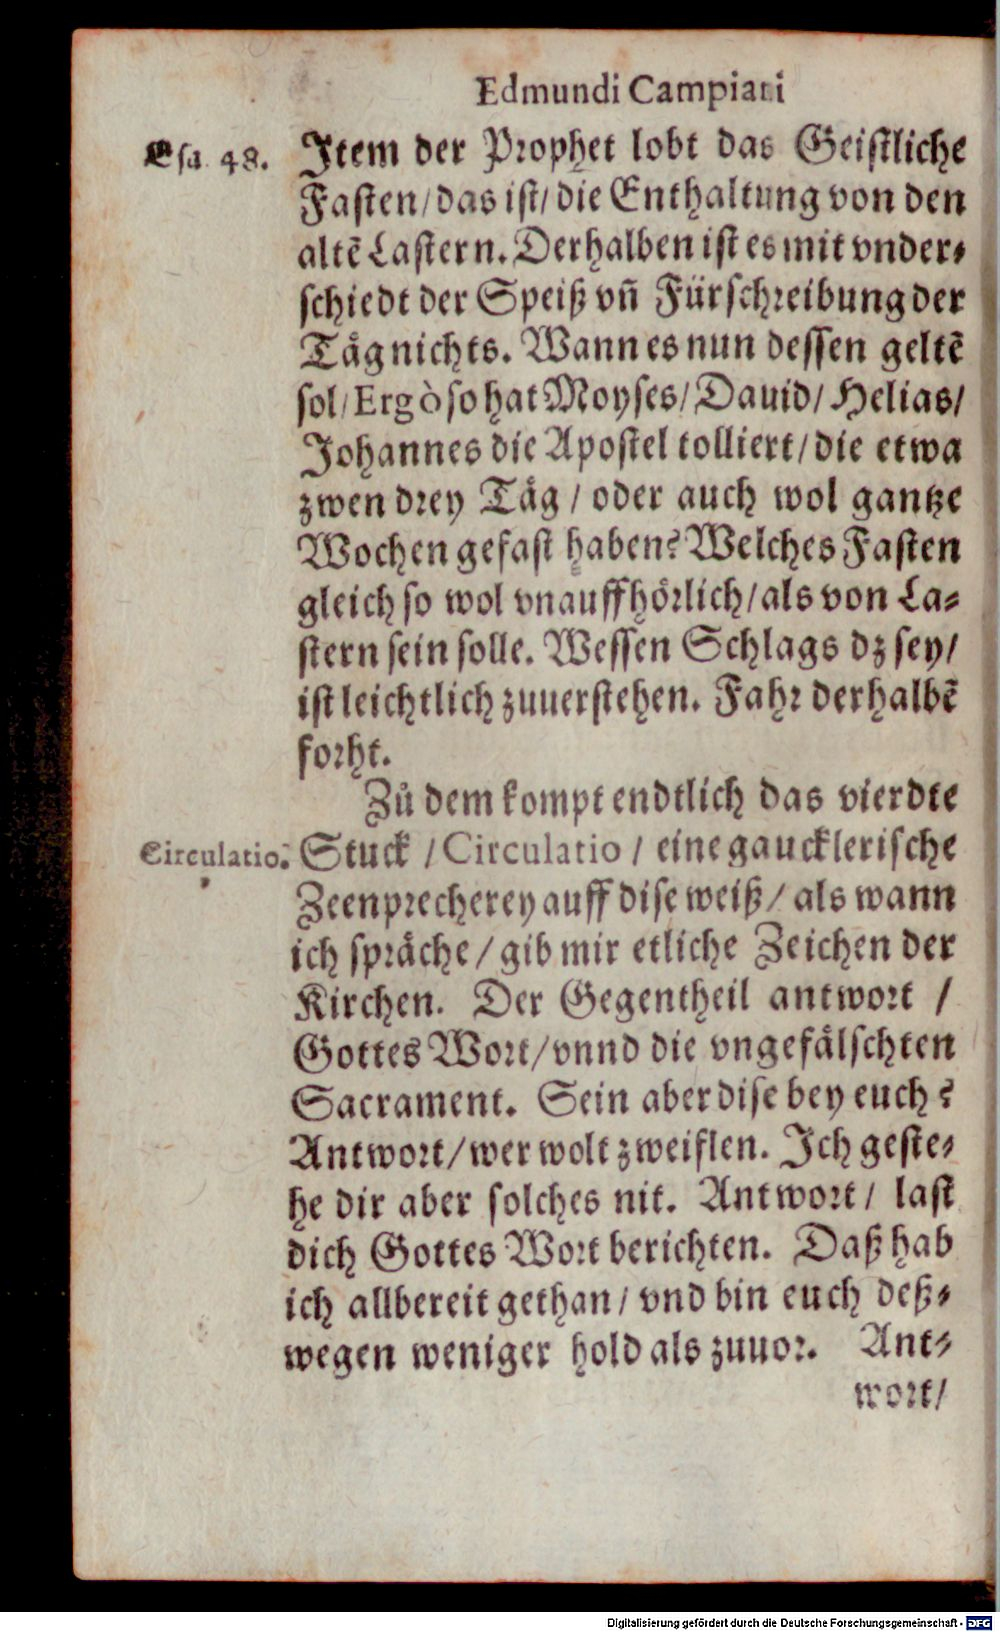 Edmundi Campiani
Esa. 48. Item der Prophet lobt das Geistliche
Fasten/das ist/die Enthaltung von den
altẽ Lastern. Derhalben ist es mit vnder-
schiedt der Speiß vñ Fürschreibung der
Täg nichts. Wann es nun dessen geltẽ
sol/Ergò so hat Moyses/Dauid/Helias/
Johannes die Apostel tolliert/die etwa
zwen drey Täg/oder auch wol gantze
Wochen gefast haben? Welches Fasten
gleich so wol vnauffhörlich/als von La-
stern sein solle. Wessen Schlags dz sey/
ist leichtlich zuuerstehen. Fahr derhalbẽ
forht.
Zů dem kompt endtlich das vierdte
Circulatio. Stuck/Circulatio/eine gaucklerische
Zeenprecherey auff dise weiß/als wann
ich spräche/gib mir etliche Zeichen der
Kirchen. Der Gegentheil antwort/
Gottes Wort/vnnd die vngefälschten
Sacrament. Sein aber dise bey euch?
Antwort/wer wolt zweiflen. Ich geste-
he dir aber solches nit. Antwort/last
dich Gottes Wort berichten. Daß hab
ich allbereit gethan/vnd bin euch deß-
wegen weniger hold als zuuor. Ant-
wort/
Digitalisierung gefördert durch die Deutsche Forschungsgemeinschaft - DFG